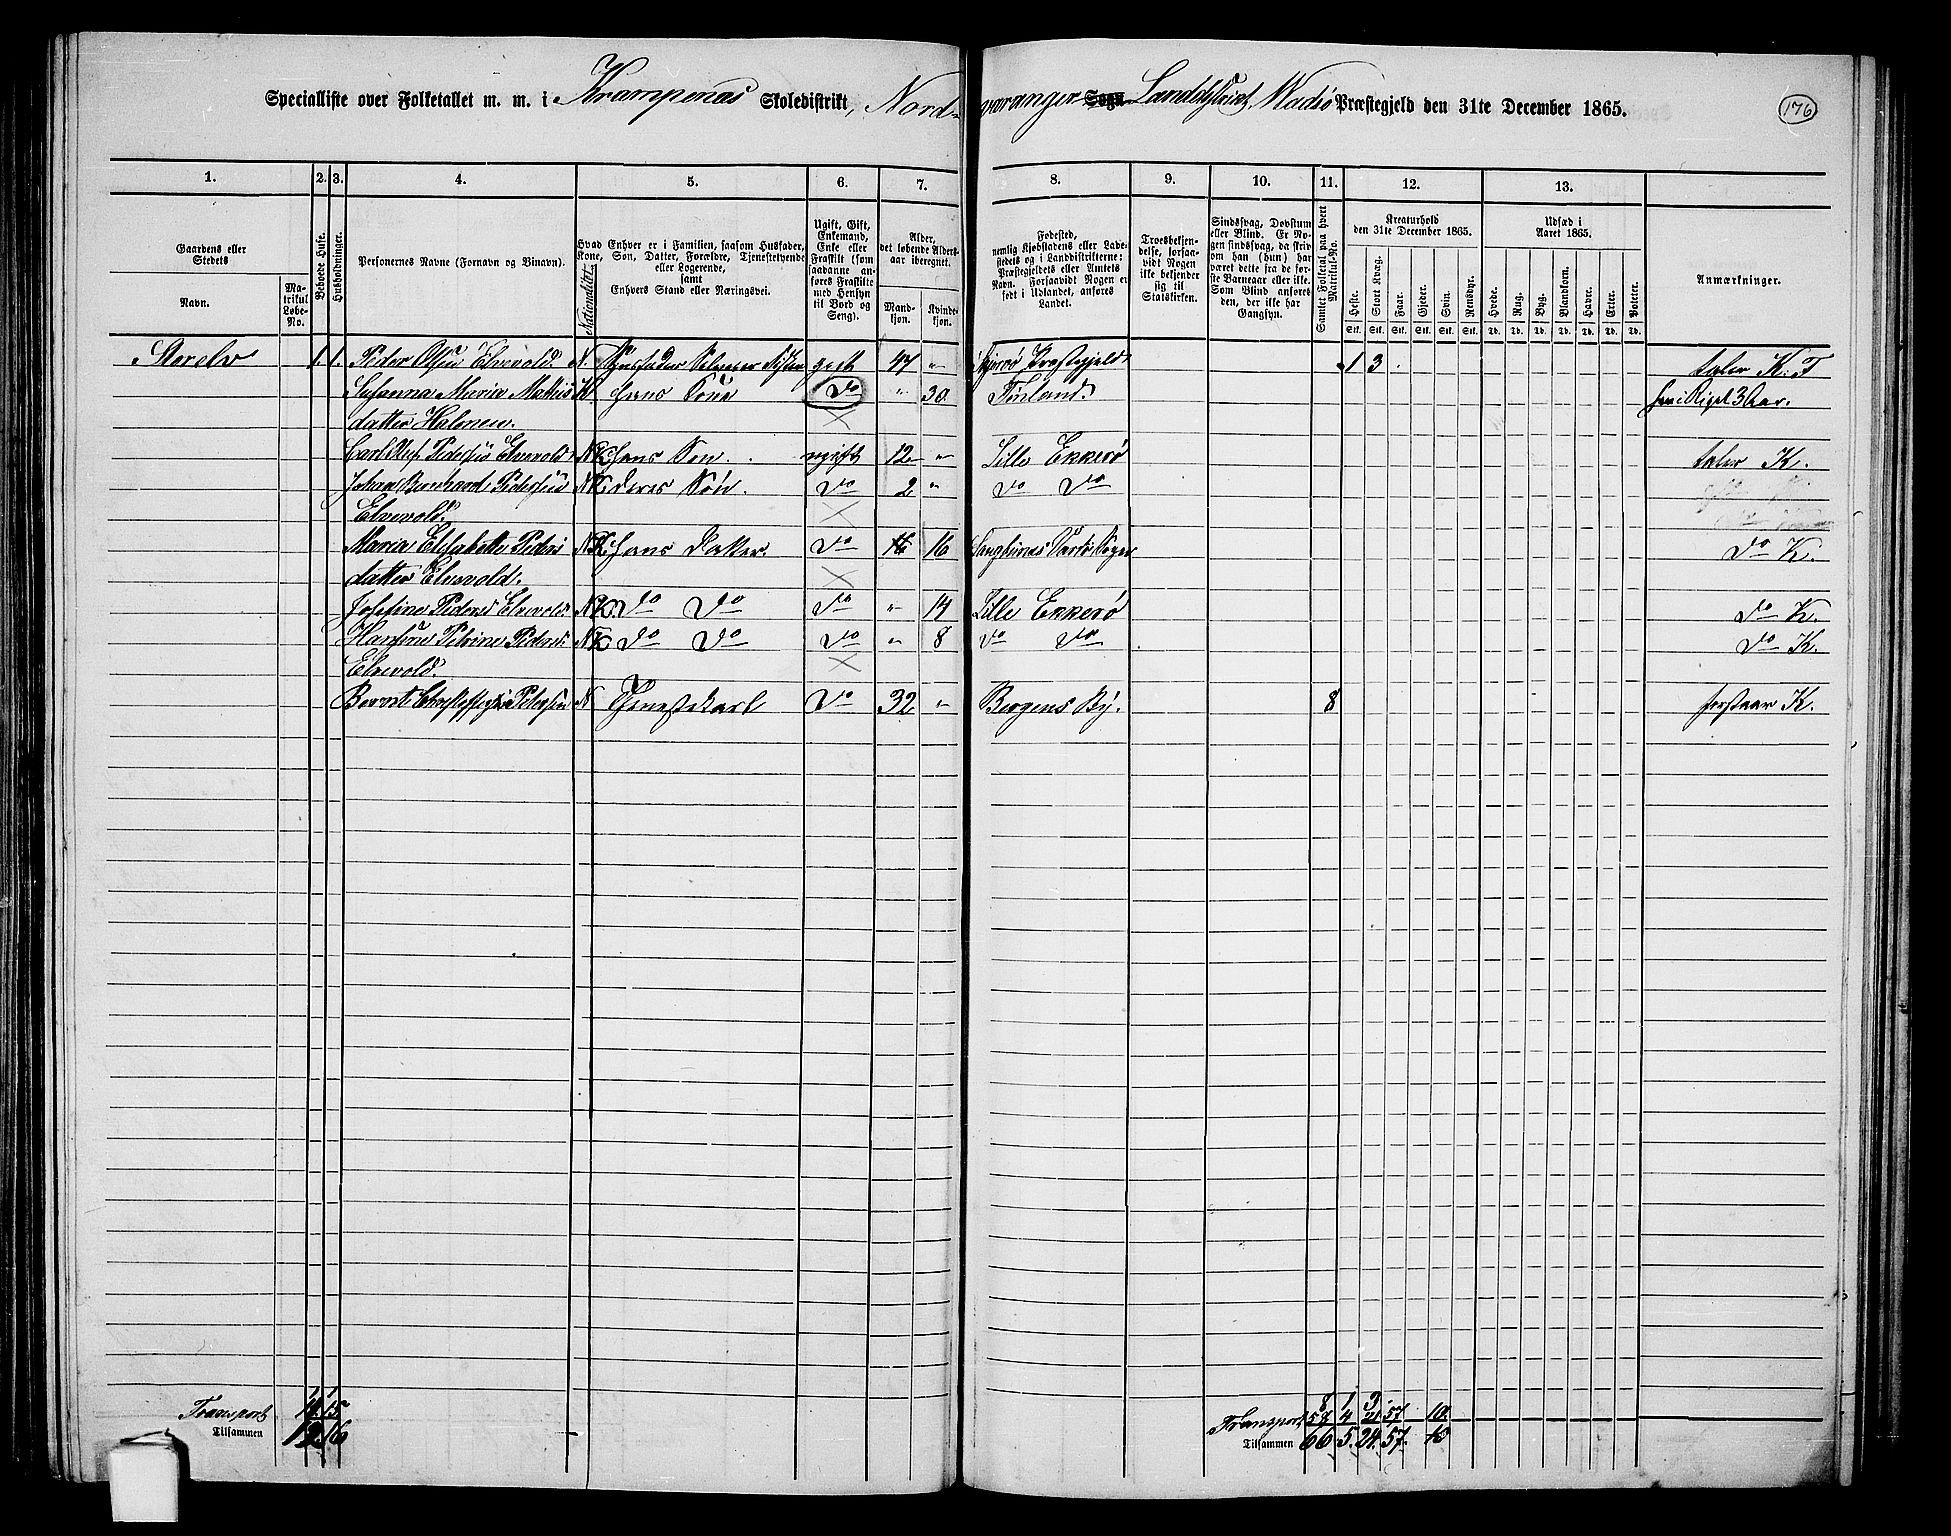 Specialliste over Folketallet m. m. i Krampenæs Skoledistrikt, Nord-varanger Sogn Landdistrict, Wadsö Præstegjeld den 31te December 1865. 176
1. 2. 3. 4. 5. 6. 7. 8. 9. 10. 11. 12. 13.
Gaardens eller Stedets
Navn.
Matrikul Løbe-No.
Beboede Huse.
Husholdninger.
Personernes Navne (Fornavn og Binavn).
Nationalitet.
Hvad Enhver er i Familien, saasom Husfader, Kone, Søn, Datter, Forældre, Tjenestetyende eller Logerende,
samt
Enhvers Stand eller Næringsvei.
Ugift, Gift, Enkemand, Enke eller Fraskilt (som saadanne anføres Fraskilte med Hensyn til Bord og Seng).
Alder, det løbende Aldersaar iberegnet.
Mandkjøn.
Kvindekjøn.
Fødested, nemlig Kjøbstadens eller Ladestedets og i Landdistrikterne: Præstegjeldets eller Amtets Navn. Forsaavidt Nogen er født i Udlandet, anføres Landet.
Troesbekjendelse, forsaavidt Nogen ikke bekjender sig til Statskirken.
Sindssvag, Døvstum eller Blind. Er Nogen sindssvag, da skrives om han (hun) har været dette fra de første Barneaar eller ikke. Som Blind anføres den, der ikke har Gangsyn.
Samlet Folketal paa hvert Matrikul-No.
Kreaturhold den 31te December 1865.
Heste. Stort Kvæg. Faar. Gjeder. Svin. Rensdyr.
Stk. Stk. Stk. Stk. Stk. Stk.
Udsæd i Aaret 1865.
Hvede. Rug. Byg. Blandkorn. Havre. Erter. Poteter.
Td. Td. Td. Td. Td. Td. Td.
Anmærkninger.
Storelv 1. 1. Peder Olsen Elvevold. N. Huusfader gift 47 " Præstegjeld 1 3 taler K. F
Susanna Maria Mattis K hans Kone Do " 30. Finland. 3 Aar.
datter Halonen.
Pedersen Elvevold NK hans Søn. ugift 12 " Lille Ekkerö taler K.
Johan Bernhard Pedersen NK deres Søn. Do 2 " Do Do
Elvevold.
Maria Elisabethe Peders NK hans Datter. Do 16 16 Do K.
datter Elvevold.
Josefine Pedersd Elvevold. NK Do Do Do " 14 Lille Ekkerö Do K.
Petrine Pedersd: NK Do Do Do " 8 Do Do Do K.
Elvevold.
Bernt Pedersen N Tjenestekarl Do 32 " Bergens By. 8 forstaar K.
1 1 8 1 3
Transport 11. 15 Transport 58 4 21 57 10
Tilsammen 12. 16 Tilsammen 66 5. 24. 57. 10